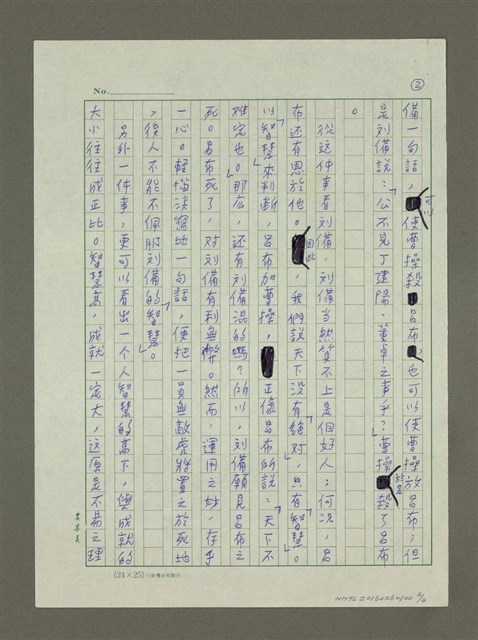 No.
②
備一句話，可以使曹操殺呂布，也可以使曹操放呂布；但
是刘備說：「公不見丁建陽、董卓之事乎？」曹操於是殺了呂布
。
從这件事看刘備，刘備当然算不上是個好人；何況，呂
布还有恩於他。因此，我們說天下沒有「絕对」，只有「智慧」。
以「智慧」來判斷，呂布加曹操，正像呂布所說：「天下不
难定也。」那后，还有刘備混的嗎？所以，刘備願見呂布之
死。呂布死了，对刘備有利無弊。然而，運用之妙，存乎
一心。輕描淡寫地一句話，便把一員無敵虎將置之於死地
，後人不能不佩服刘備的「智慧」。
另外一件事，更可以看出一个人智慧的高下，與成就的
大小往往成正比。智慧高，成就一定大，这原是不易之理
(24×25)